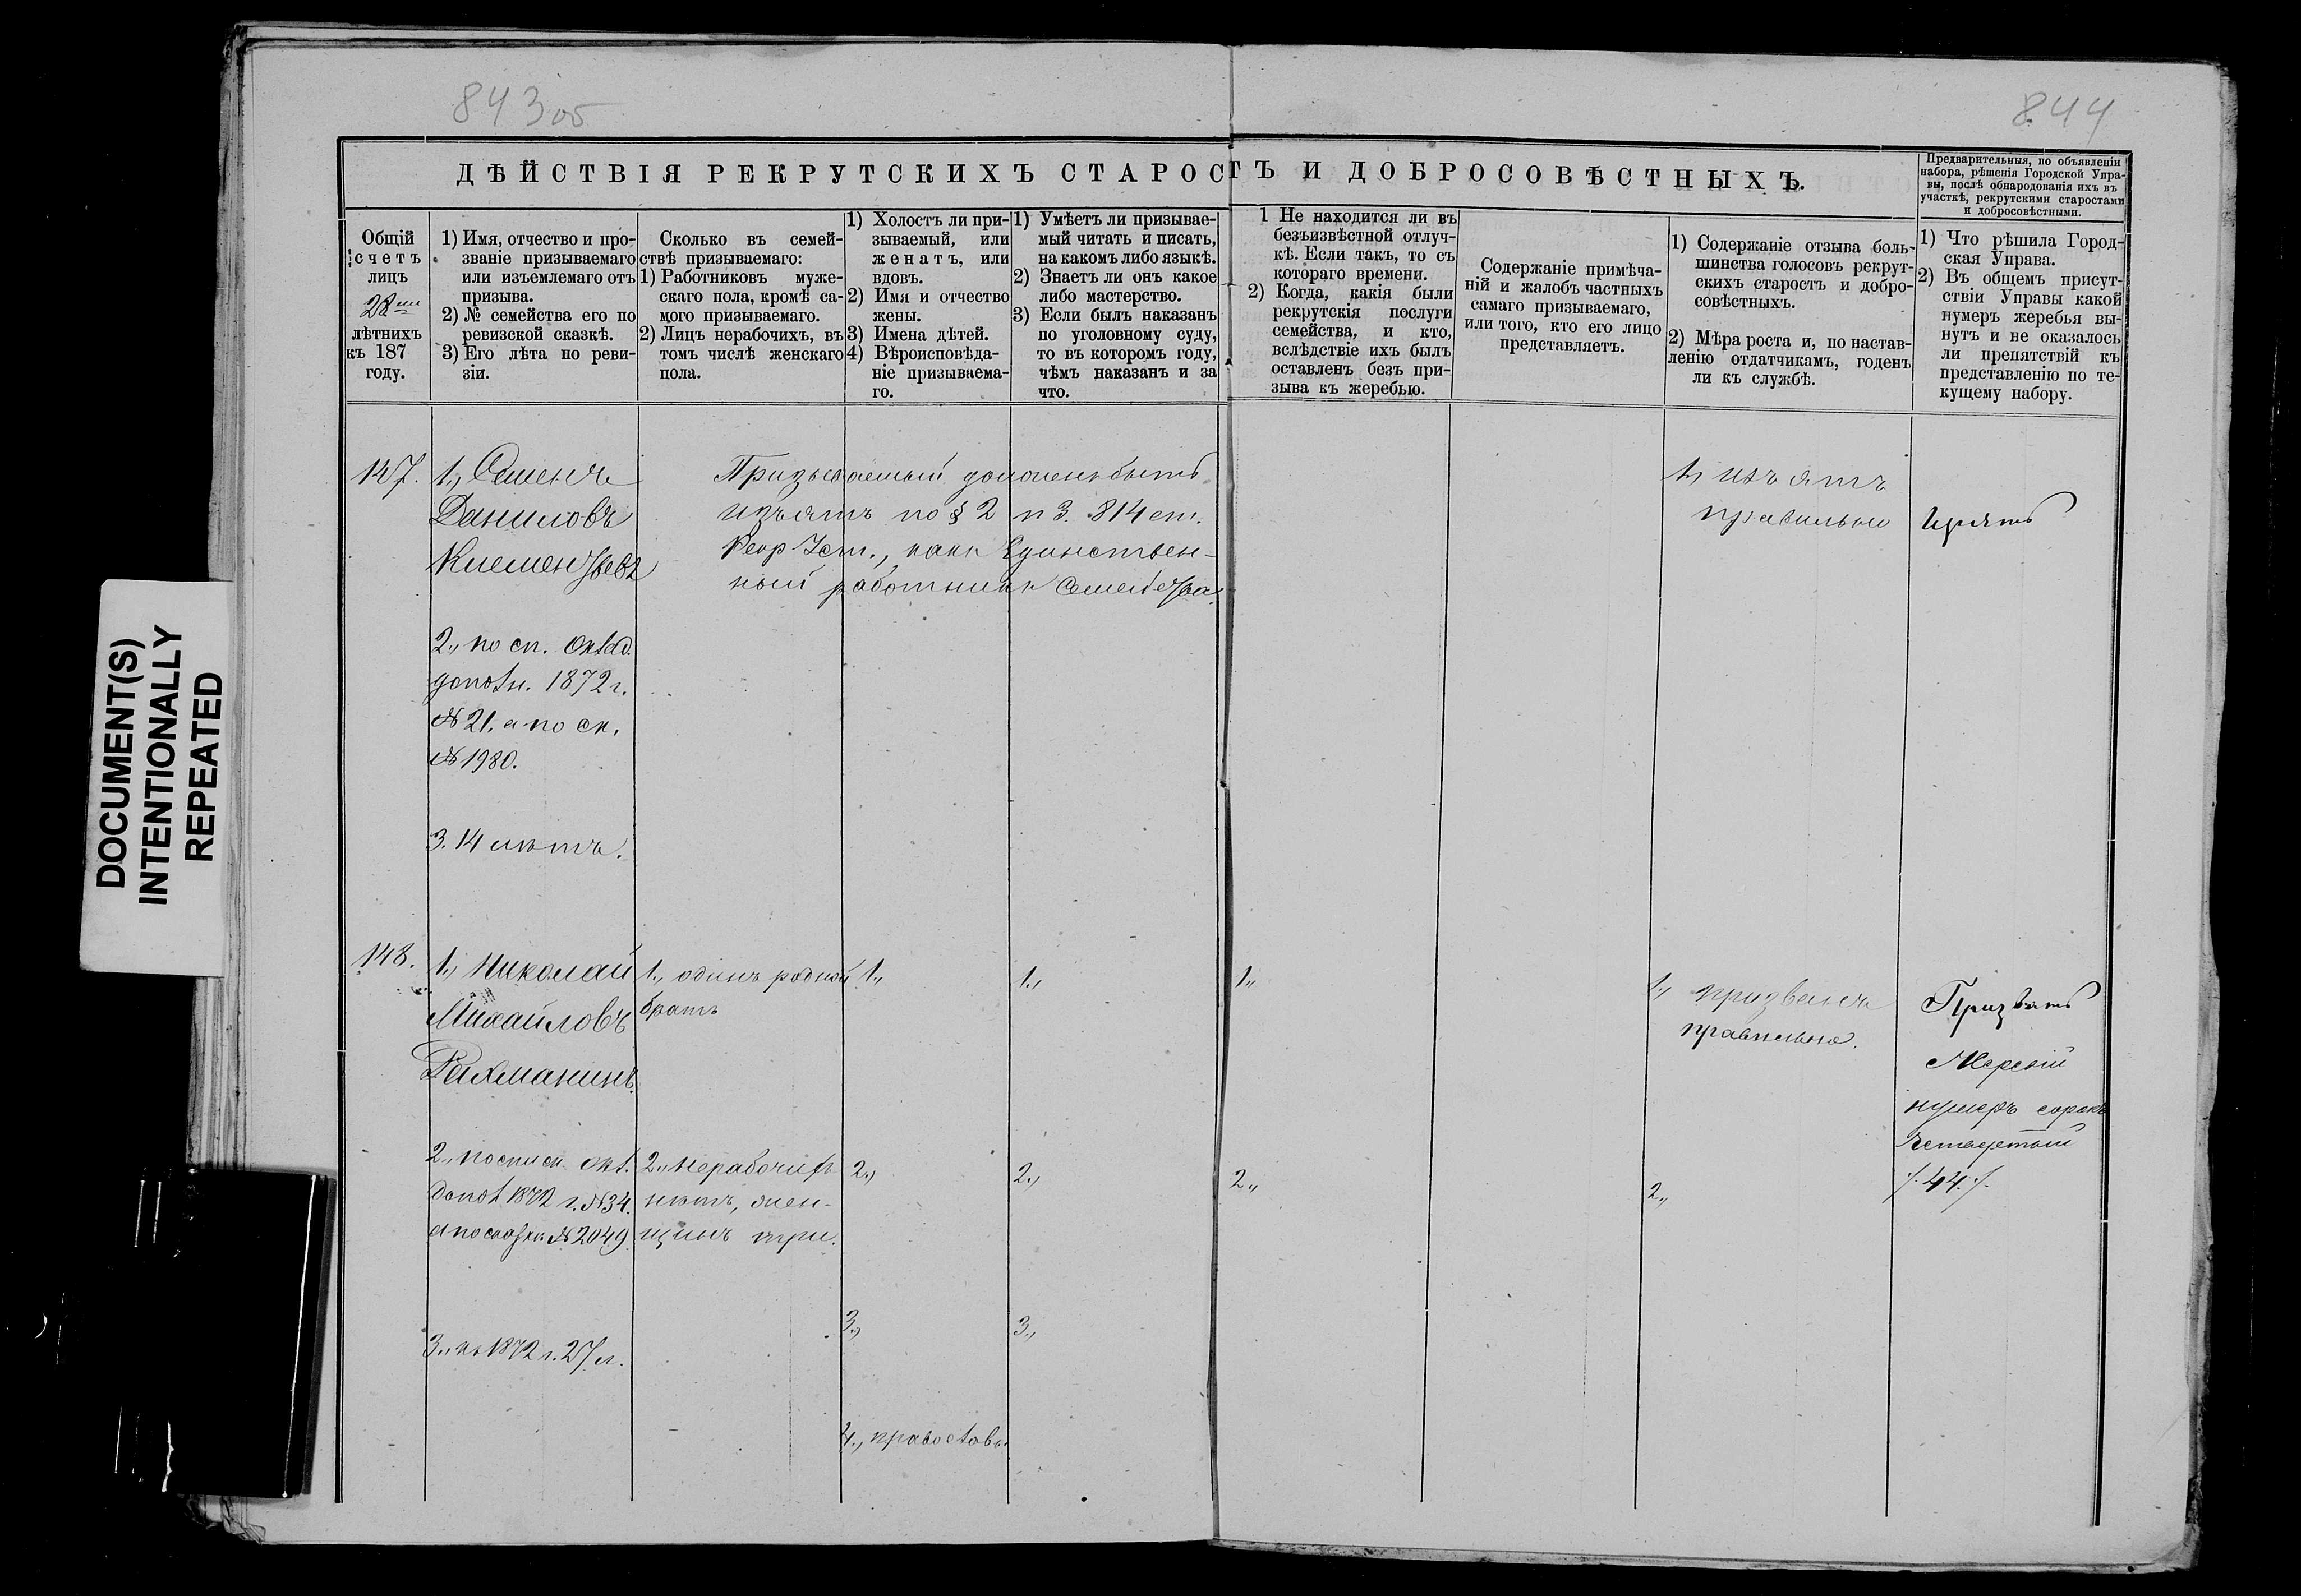 843 об
844
ДѢЙСТВІЯ РЕКРУТСКИХЪ СТАРОСТЪ И ДОБРОСОВѢСТНЫХЪ.
Предварительныя, по объявленіи
набора, рѣшенія Городской Упра-
вы, послѣ обнародованія ихъ въ
участкѣ, рекрутскими старостами
и добросовѣстными.
Общій
счетъ
лицъ
22
лѣтнихъ
къ 187
году.
1) Имя, отчество и про-
званіе призываемаго
или изъемлемаго отъ
призыва.
2) № семейства его по
ревизской сказкѣ.
3) Его лѣта по реви-
зіи.
Сколько въ семей-
ствѣ призываемаго:
1) Работниковъ муже-
скаго пола, кромѣ са-
мого призываемаго.
2) Лицъ нерабочихъ, въ
томъ числѣ женскаго
пола.
1) Холостъ ли при-
зываемый, или
женатъ, или
вдовъ.
2) Имя и отчество
жены.
3) Имена дѣтей.
4) Вѣроисповѣда-
ніе призываема-
го.
1) Умѣетъ ли призывае-
мый читать и писать,
на какомъ либо языкѣ.
2) Знаетъ ли онъ какое
либо мастерство.
3) Если былъ наказанъ
по уголовному суду,
то въ которомъ году,
чѣмъ наказанъ и за
что.
1 Не находится ли въ
безъизвѣстной отлуч-
кѣ. Если такъ, то съ
котораго времени.
2) Когда, какія были
рекрутскія послуги
семейства, и кто,
вслѣдствіе ихъ былъ
оставленъ безъ при-
зыва къ жеребью.
Содержаніе примѣча-
ній и жалобъ частныхъ
самаго призываемаго,
или того, кто его лицо
представляетъ.
1) Содержаніе отзыва боль-
шинства голосовъ рекрут-
скихъ старостъ и добро-
совѣстныхъ.
2) Мѣра роста и, по настав-
ленію отдатчикамъ, годенъ
ли къ службѣ.
1) Что рѣшила Город-
ская Управа.
2) Въ общемъ присут-
ствіи Управы какой
нумеръ жеребья вы-
нутъ и не оказалось
ли препятствій къ
представленію по те-
кущему набору.
147.
1., Семенъ
Даниловъ
Клементьевъ
2., по сп. Оклад.
дополн. 1872 г.
№ 21. а по ск.
№ 1980.
3. 14 лѣтъ.
Призываемый долженъ быть
изъятъ по § 2 п 3. 814 ст.
Рекр Уст., какъ Единствен-
ный работникъ Семейства.
1, изъятъ
правильно
Изъять
148.
1., Николай
Михайловъ
Рахманинъ.
2., по списк. окл.
допол 1872 г. № 34.
а по сказкѣ № 2049.
3., къ 1872 г. 27 л.
1., одинъ родной
братъ
2., нерабочихъ
нѣтъ, жен-
щинъ три.
1.,
2.,
3.,
4., православн.
1.,
2.,
3.,
1.,
2.,
1., призванъ
правильно.
2.,
Призвать
Жеребій
нумеръ сорокъ
Четвертый
/. 44. /.
DOCUMENT(S)
INTENTIONALLY
REPEATED